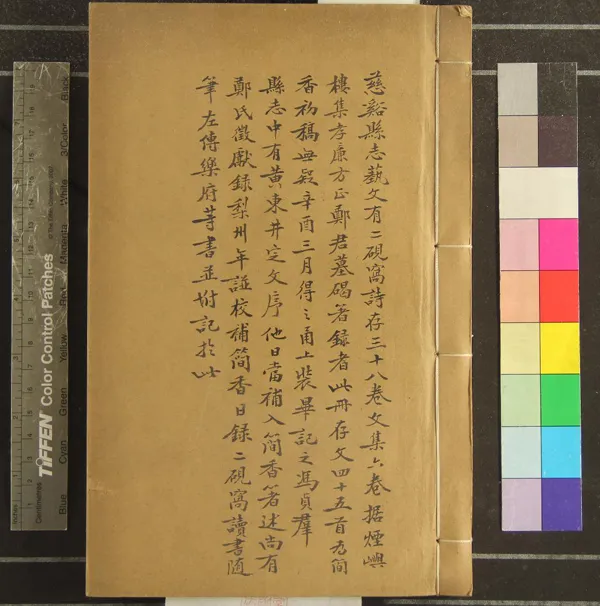 慈谿縣志藝文有二硯窩詩存三十八卷文集六卷據煙嶼
樓集孝廉方正鄭君墓碣著錄者此冊存文四十五首為簡
香初稿無疑辛酉三月得之甬上裝畢記之馮貞羣
縣志中有黃東井定文序他日當補入簡香著述尚有
鄭氏徵獻錄梨州年譜校補簡香日錄二硯窩讀書隨
筆左傳樂府等書並坿記於此
TIFFEN Color Control Patches
Blue Cyan Green Yellow Red Magenta White 3/Color Black
Centimetres
Inches